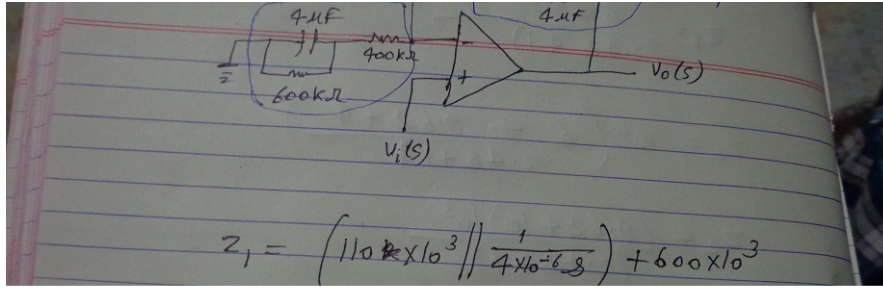 4μF 4μF
400kΩ - 
600kΩ + V₀(s)
Vᵢ(s)
Z₁ = (110 ×10³ || 1/(4×10⁻⁶ s)) + 600×10³